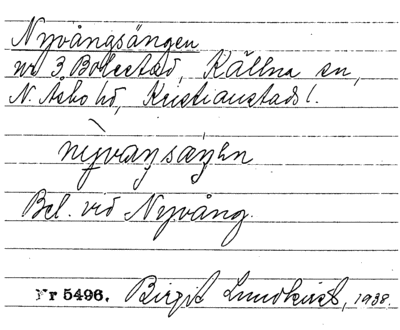 Nyvångsängen
nr 3 Bolestad, Källna sn,
N. Åsbo hd, Kristianstads l.
Bel. vid Nyvång.
Nr 5496. Birgit Lundkvist, 1938.